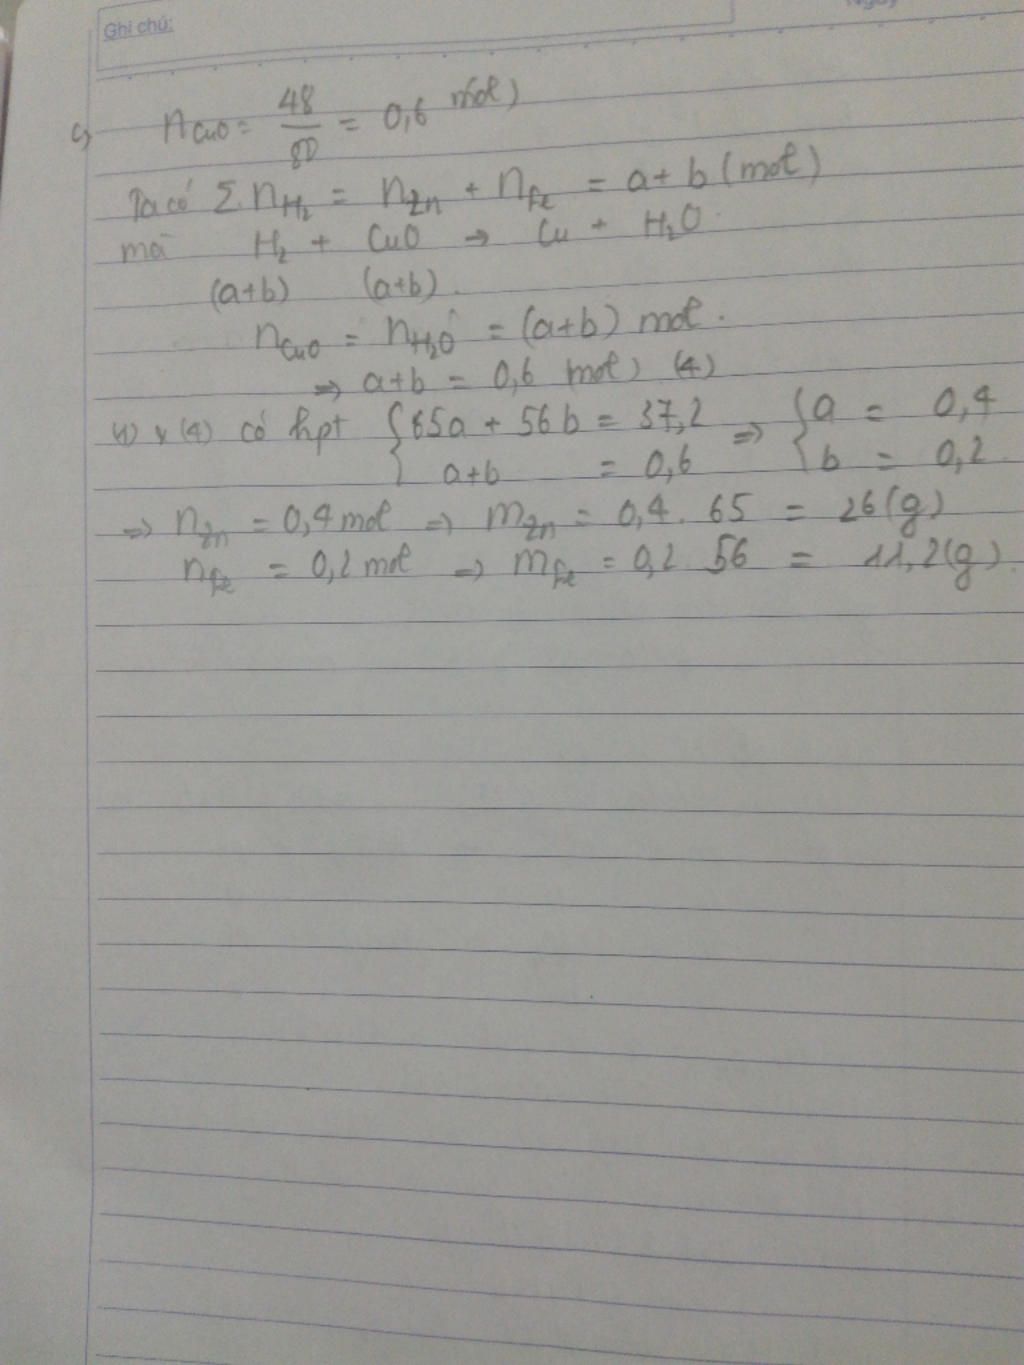 Ghi chú:
c) nCuO = 48/80 = 0,6 mol)
Ta có Σ nH₂ = nZn + nFe = a+b (mol)
mà H₂ + CuO → Cu + H₂O.
(a+b) (a+b).
nCuO = nH₂O = (a+b) mol.
⇒ a+b = 0,6 mol) (4)
(1) v (4) có hpt { 65a + 56b = 37,2 ⇒ { a = 0,4
{ a+b = 0,6 { b = 0,2
⇒ nZn = 0,4 mol ⇒ mZn = 0,4. 65 = 26(g)
nFe = 0,2 mol ⇒ mFe = 0,2 56 = 11,2(g).